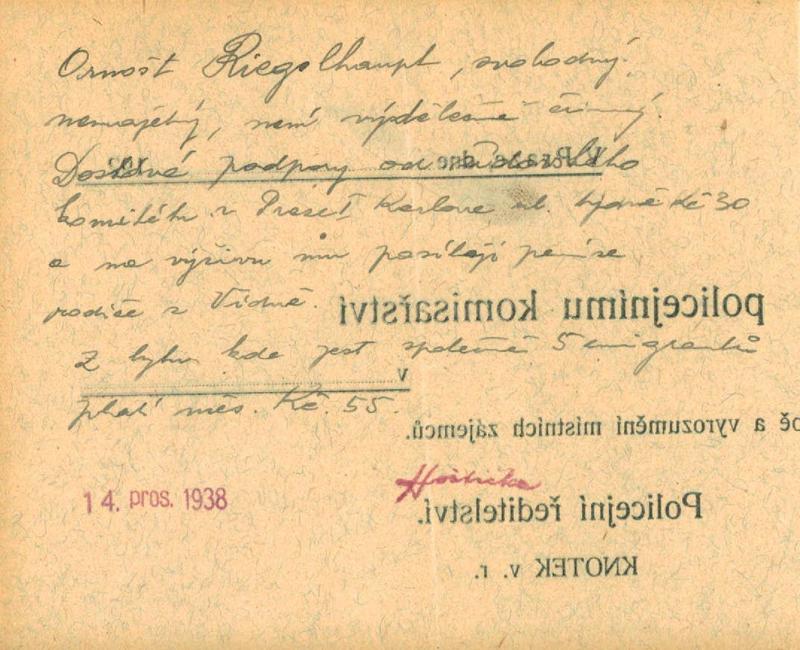 Ornošt Riegelhaupt, svobodný.
nemajetný, není výdělečně činný.
Dostává podpory od
komitétu v Praze I Karlova ul. týdně Kč 30
a na výživu mu posílají peníze
rodiče z Vídně.
Z bytu kde jest společně 5 emigrantů
platí měs. Kč. 55.
V Praze dne 193
policejnímu komisařství
v
a vyrozumění místních zájemců.
14. pros. 1938
Policejní ředitelství.
KNOTEK v. r.